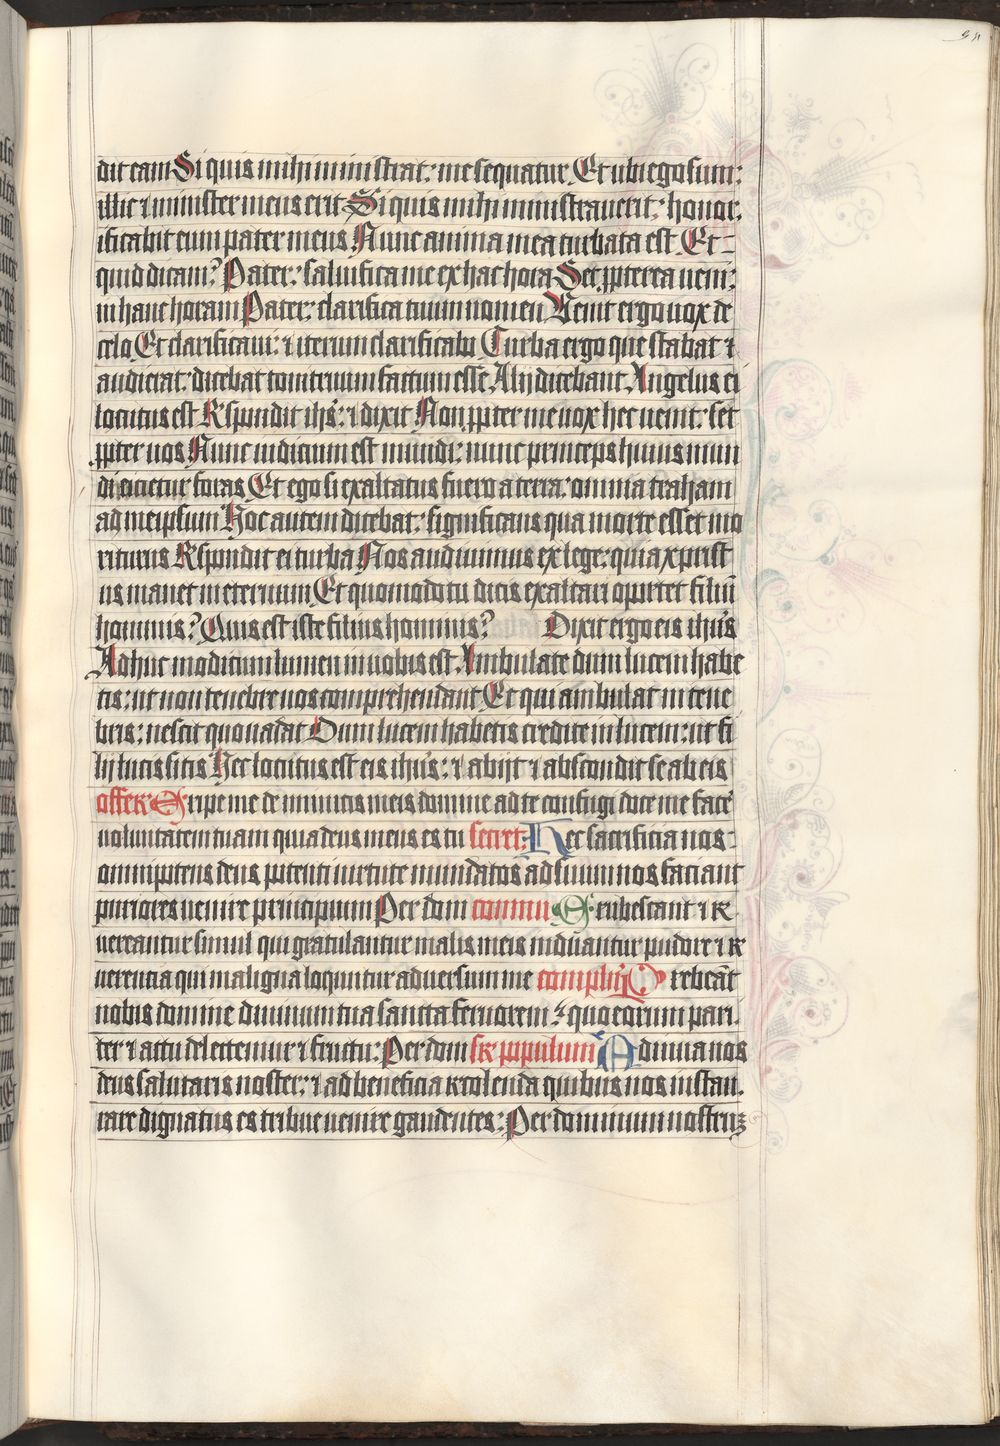 dit eam Si quis mihi ministrat: me sequatur Et ubi ego sum:
illic ⁊ minister meus erit Si quis mihi ministrauerit: honor
ificabit eum pater meus Nunc anima mea turbata est Et
quid dicam? Pater: saluifica me ex hac hora Set ppterea ueni:
in hanc horam Pater: clarifica tuum nomen Uenit ergo uox de
celo Et clarificaui: ⁊ iterum clarificabo Turba ergo que stabat ⁊
audierat: dicebat tonitruum factum esse Alij dicebant Angelus ei
locutus est Rſpondit ihs: ⁊ dixit Non ppter me uox hec uenit: set
ppter uos Nunc iudicium est mundi: nunc princeps huius mun
di eicietur foras Et ego si exaltatus fuero a terra: omnia traham
ad meipsum Hoc autem dicebat: significans qua morte esset mo
riturus Rſpondit ei turba Nos audiuimus ex lege: quia xprist
us manet in eternum Et quomodo tu dicis exaltari oportet filiū
hominis? Quis est iste filius hominis? Dixit ergo eis ihūs
Adhuc modicum lumen in uobis est Ambulate dum lucem habe
tis: ut non tenebre uos comprehendant Et qui ambulat in tene
bris: nescit quo uadat Dum lucem habetis credite in lucem: ut fi
lij lucis sitis Hec locutus est eis ihūs: ⁊ abijt ⁊ abscondit se ab eis
offer Eripe me de inimicis meis domine ad te confugi doce me facē
uoluntatem tuam quia deus meus es tu secret Hec sacrificia nos
omnipotens deus potenti uirtute mundatos ad suum nos faciant
puriores uenire principium Per dom commu Erubescant ⁊ re
uereantur simul qui gratulantur malis meis induantur pudore ⁊ re
uerentia qui maligna loquntur aduersum me compl' Prebeāt
nobis domine diuinum tua sancta feruorem: quo eorum pari
ter ⁊ actu delectemur ⁊ fructu: Per dom sr ppopulum Adiuua nos
deus salutaris noster: ⁊ ad beneficia recolenda quibus nos instau
rare dignatus es tribue uenire gaudentes: Per dominum nostruꝫ